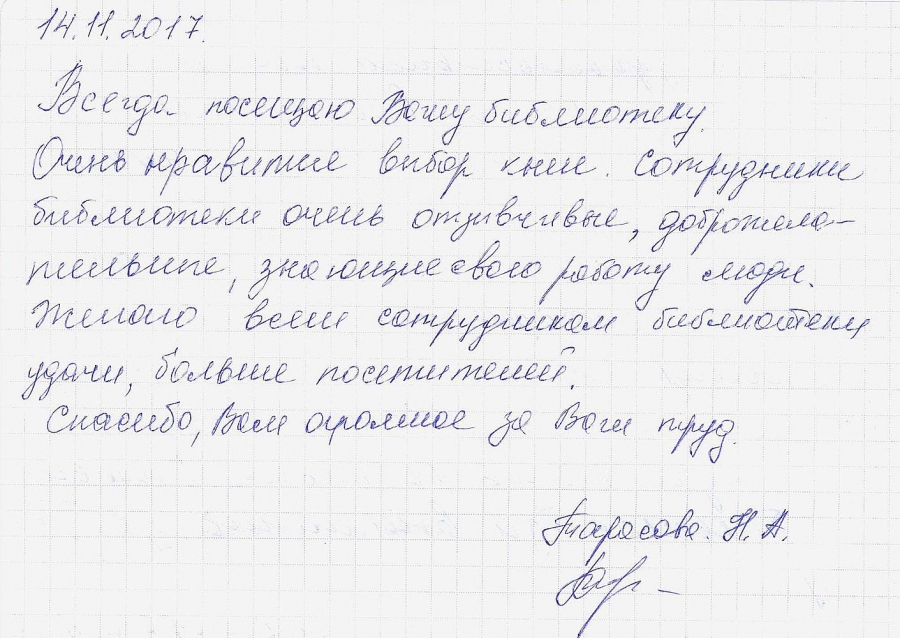 14.11.2017.
Всегда посещаю Вашу библиотеку.
Очень нравится выбор книг. Сотрудники
библиотеки очень отзывчивые, доброжела-
тельные, знающие свою работу люди.
Желаю всем сотрудникам библиотеки
удачи, больше посетителей.
Спасибо, Вам огромное за Ваш труд.
Тарасова. Н. А.